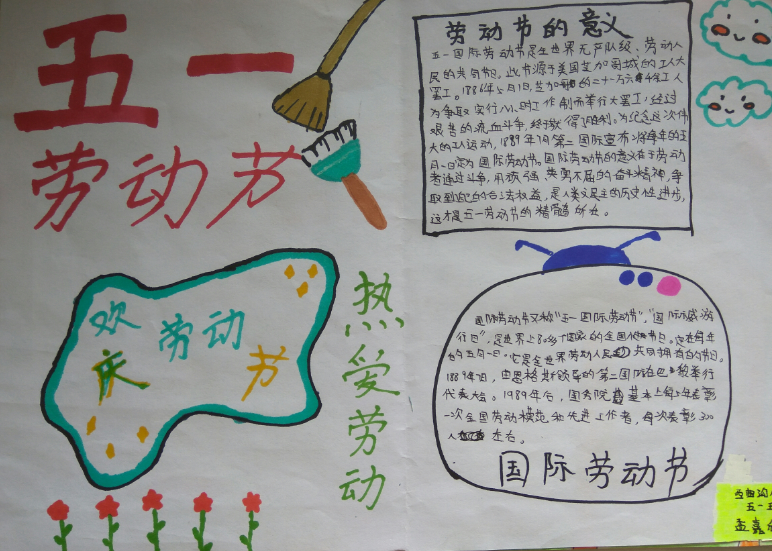 五一
劳动节
欢庆
劳动
节
热爱劳动
劳动节的意义
五一国际劳动节是全世界无产队级、劳动人
民的共同节日。此节源于美国芝加哥城的工人大
罢工。1886年5月1日,芝加哥的二十一万六千余名工人
为争取实行八小时工作制而举行大罢工,经过
艰苦的流血斗争,终于取得了胜利。为纪念这次伟
大的工人运动,1889年7月第二国际宣布将每年的五
月一日定为国际劳动节。国际劳动节的意义在于劳动
者通过斗争,用顽强、英勇不屈的奋斗精神,争
取到自己的合法权益,是人类文明民主的历史性进步,
这才是五一劳动节的精髓所在。
国际劳动节又称"五一国际劳动节","国际示威游
行日",是世界上80多个国家的全国性节日。定在每年
的五月一日。它是全世界劳动人民共同拥有的节日。
1889年7月,由恩格斯领导的第二国际在巴黎举行
代表大会。1989年后,国务院基本上每5年表彰
一次全国劳动模范和先进工作者,每次表彰300
人左右。
国际劳动节
五一
孟嘉